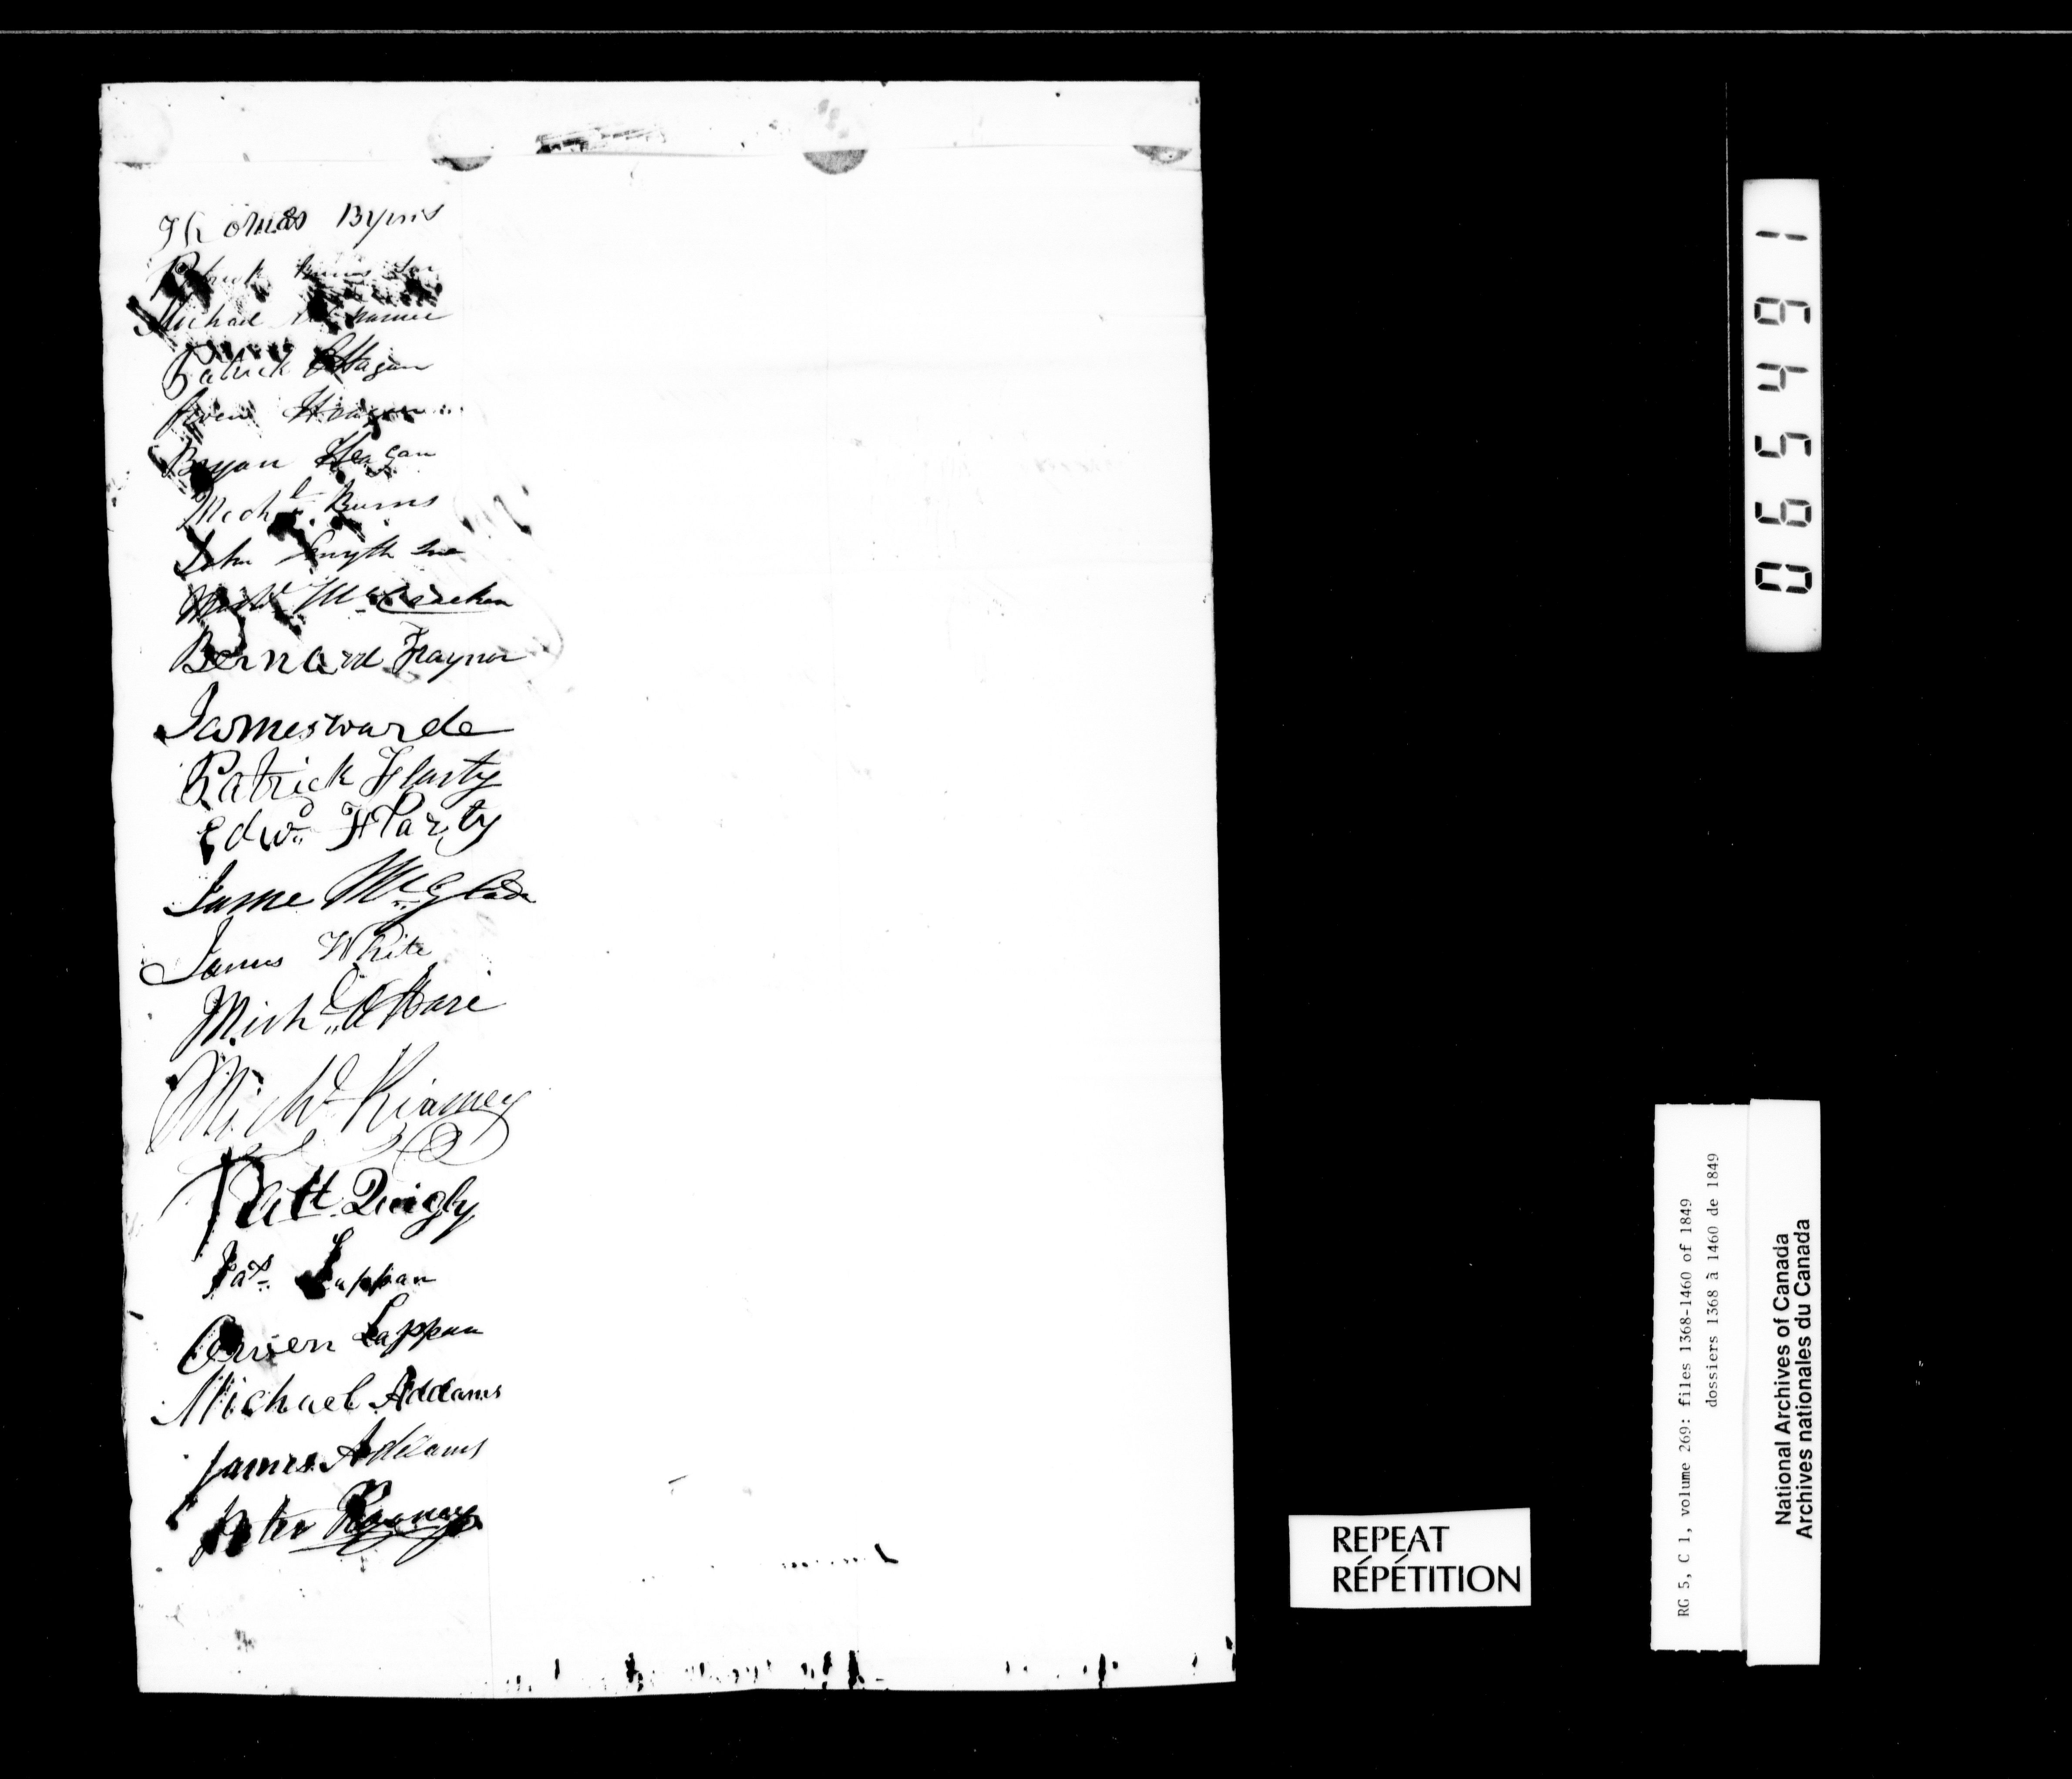 Thomas Byrns
Patrick
Michael
Patrick O'Hagan
Owen Heagan
Bryan Heagan
Mich.l Burns
John Smyth
McCracken
Bernard Traynor
James warde
Patrick Harty
Edwd Harty
Jame McGlade
James White
Michl O'Hare
Michl Kearney
Patt Quigly
Pat.k Lappan
Owen Lappan
Michael Addams
James Addams
Peter
REPEAT
RÉPÉTITION
065491
RG 5, C 1, volume 269: files 1368-1460 of 1849
dossiers 1368 à 1460 de 1849
National Archives of Canada
Archives nationales du Canada